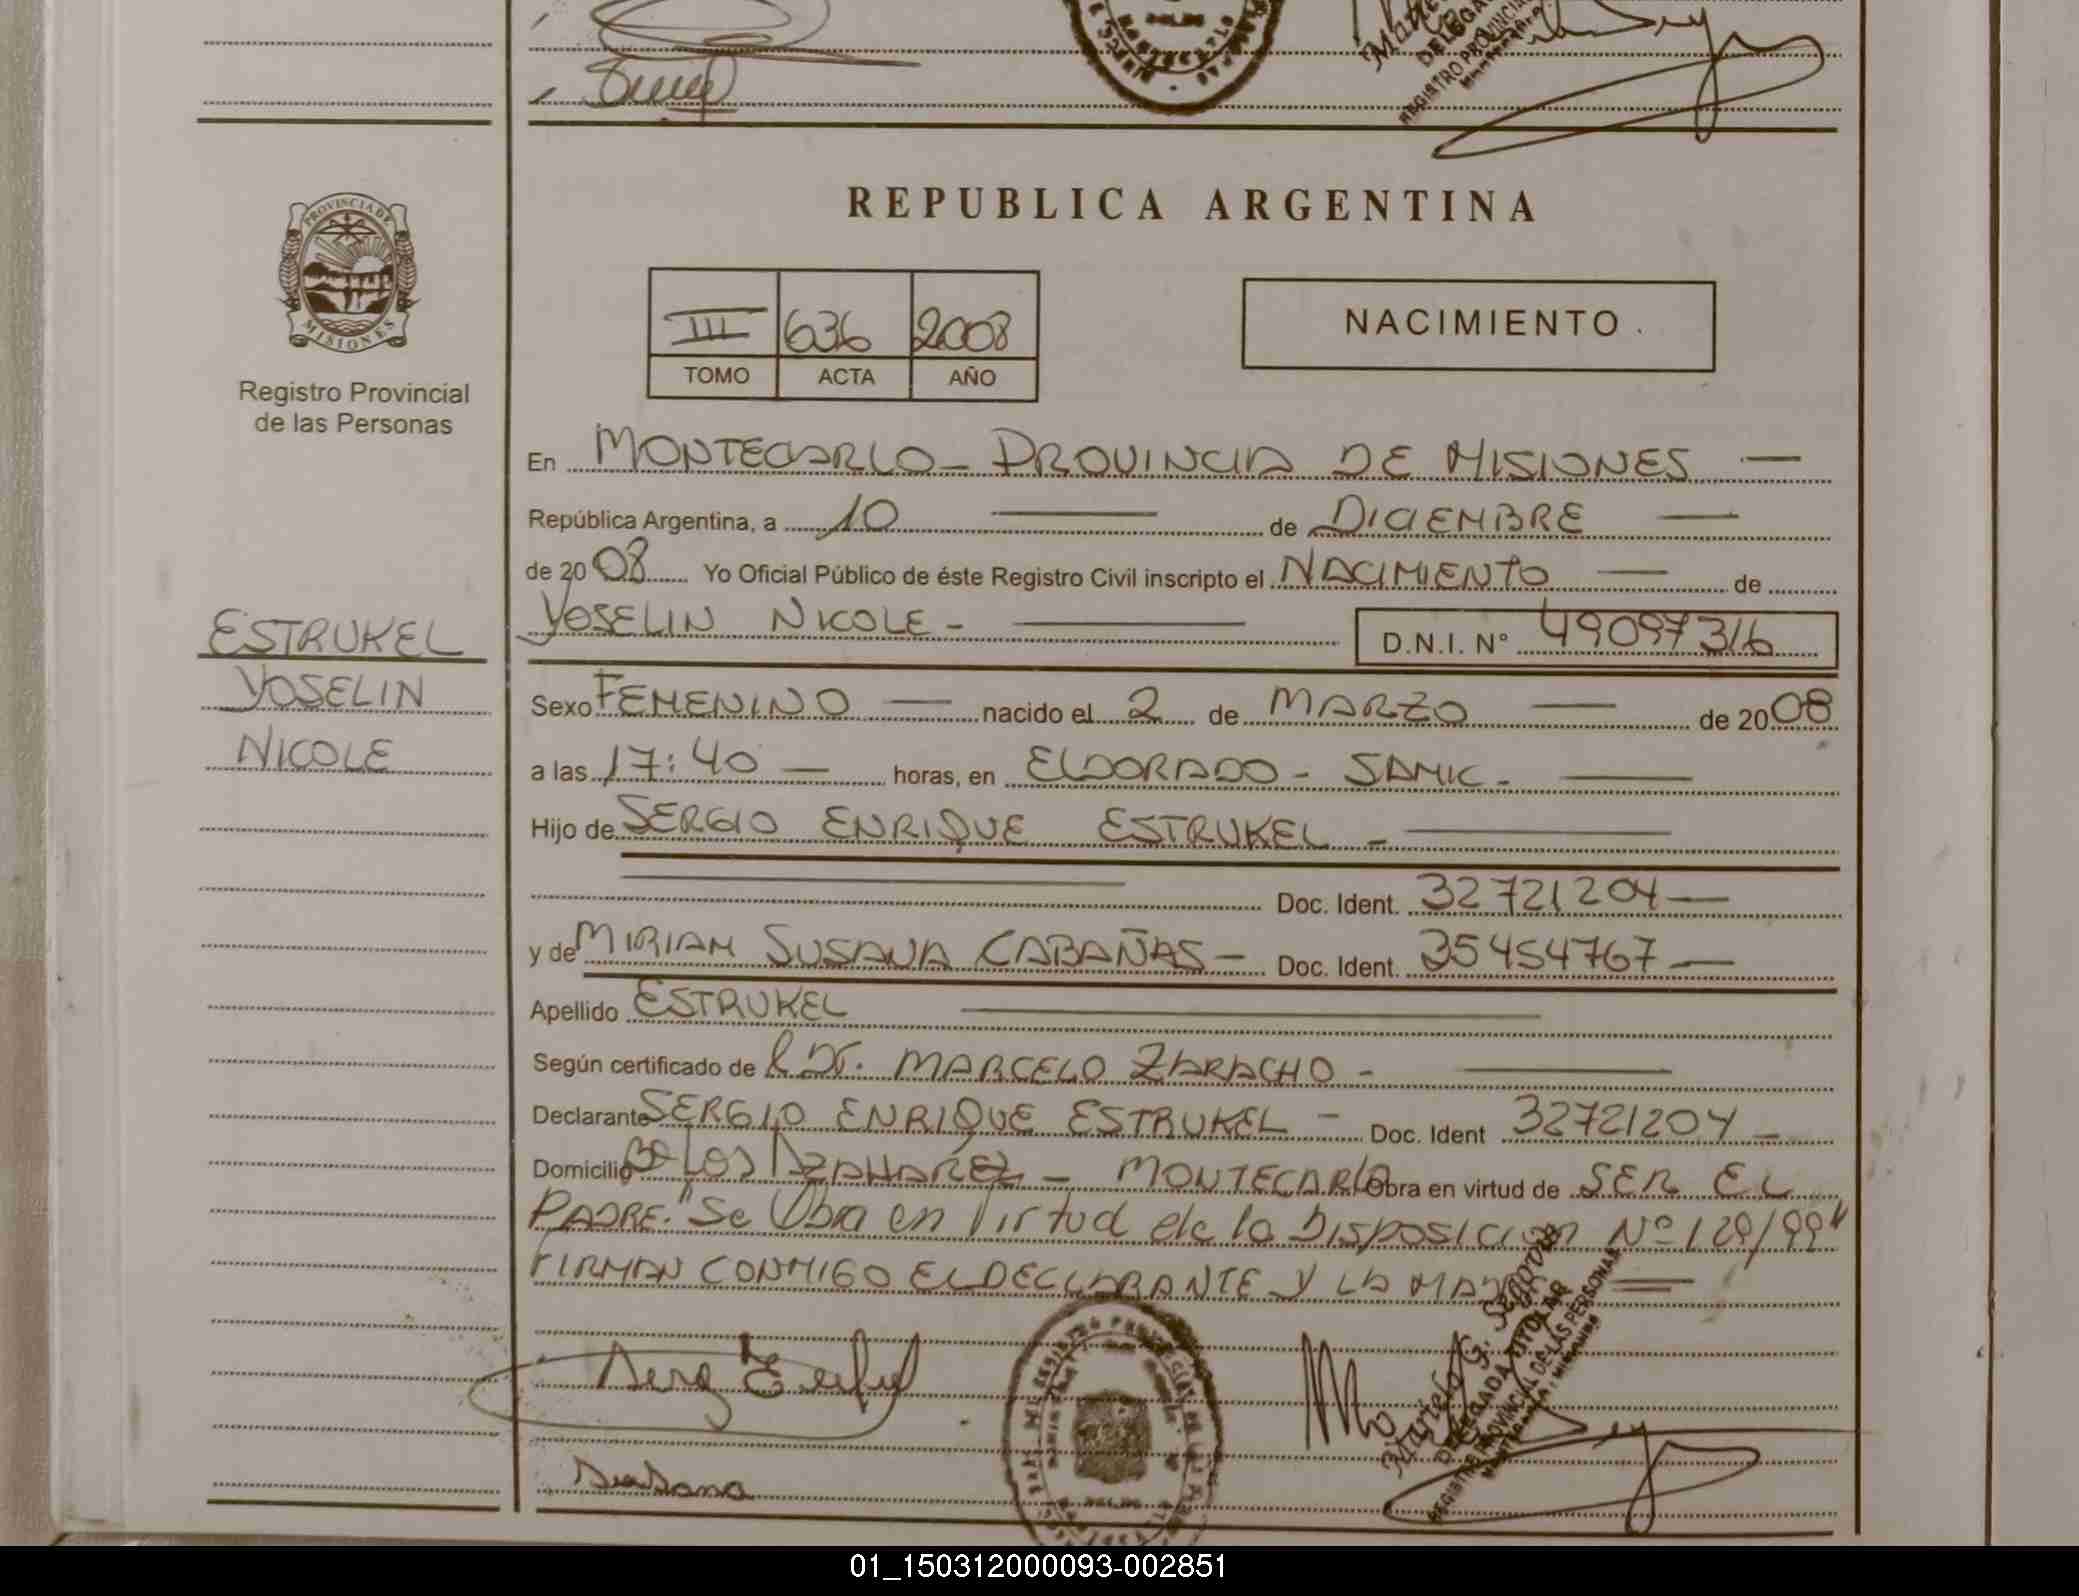 REPUBLICA ARGENTINA
PROVINCIA DE
MISIONES
Registro Provincial
de las Personas
III 636 2008
TOMO ACTA AÑO
NACIMIENTO
En MONTECARLO - PROVINCIA DE MISIONES —
República Argentina, a 10 — de DICIEMBRE —
de 2008 Yo Oficial Público de éste Registro Civil inscripto el NACIMIENTO — de
YOSELIN NICOLE - — D.N.I. N° 49097316
ESTRUKEL
YOSELIN
NICOLE
Sexo FEMENINO — nacido el 2 de MARZO — de 2008
a las 17:40 — horas, en ELDORADO - SAMIC - —
Hijo de SERGIO ENRIQUE ESTRUKEL - —
Doc. Ident. 32721204 —
y de MIRIAM SUSANA CABAÑAS - Doc. Ident. 35454767 —
Apellido ESTRUKEL —
Según certificado de Dr. MARCELO ZARACHO - —
Declarante SERGIO ENRIQUE ESTRUKEL - Doc. Ident 32721204 -
Domicilio Bº LOS AZAHAREZ - MONTECARLO Obra en virtud de SER EL
PADRE. "Se Obra en Virtud de la Disposicion Nº 129/99"
FIRMAN CONMIGO EL DECLARANTE Y LA MADRE =
Mariela G.
DELEGADA TITULAR
REGISTRO PROVINCIAL DE LAS PERSONAS
Susana
01_150312000093-002851